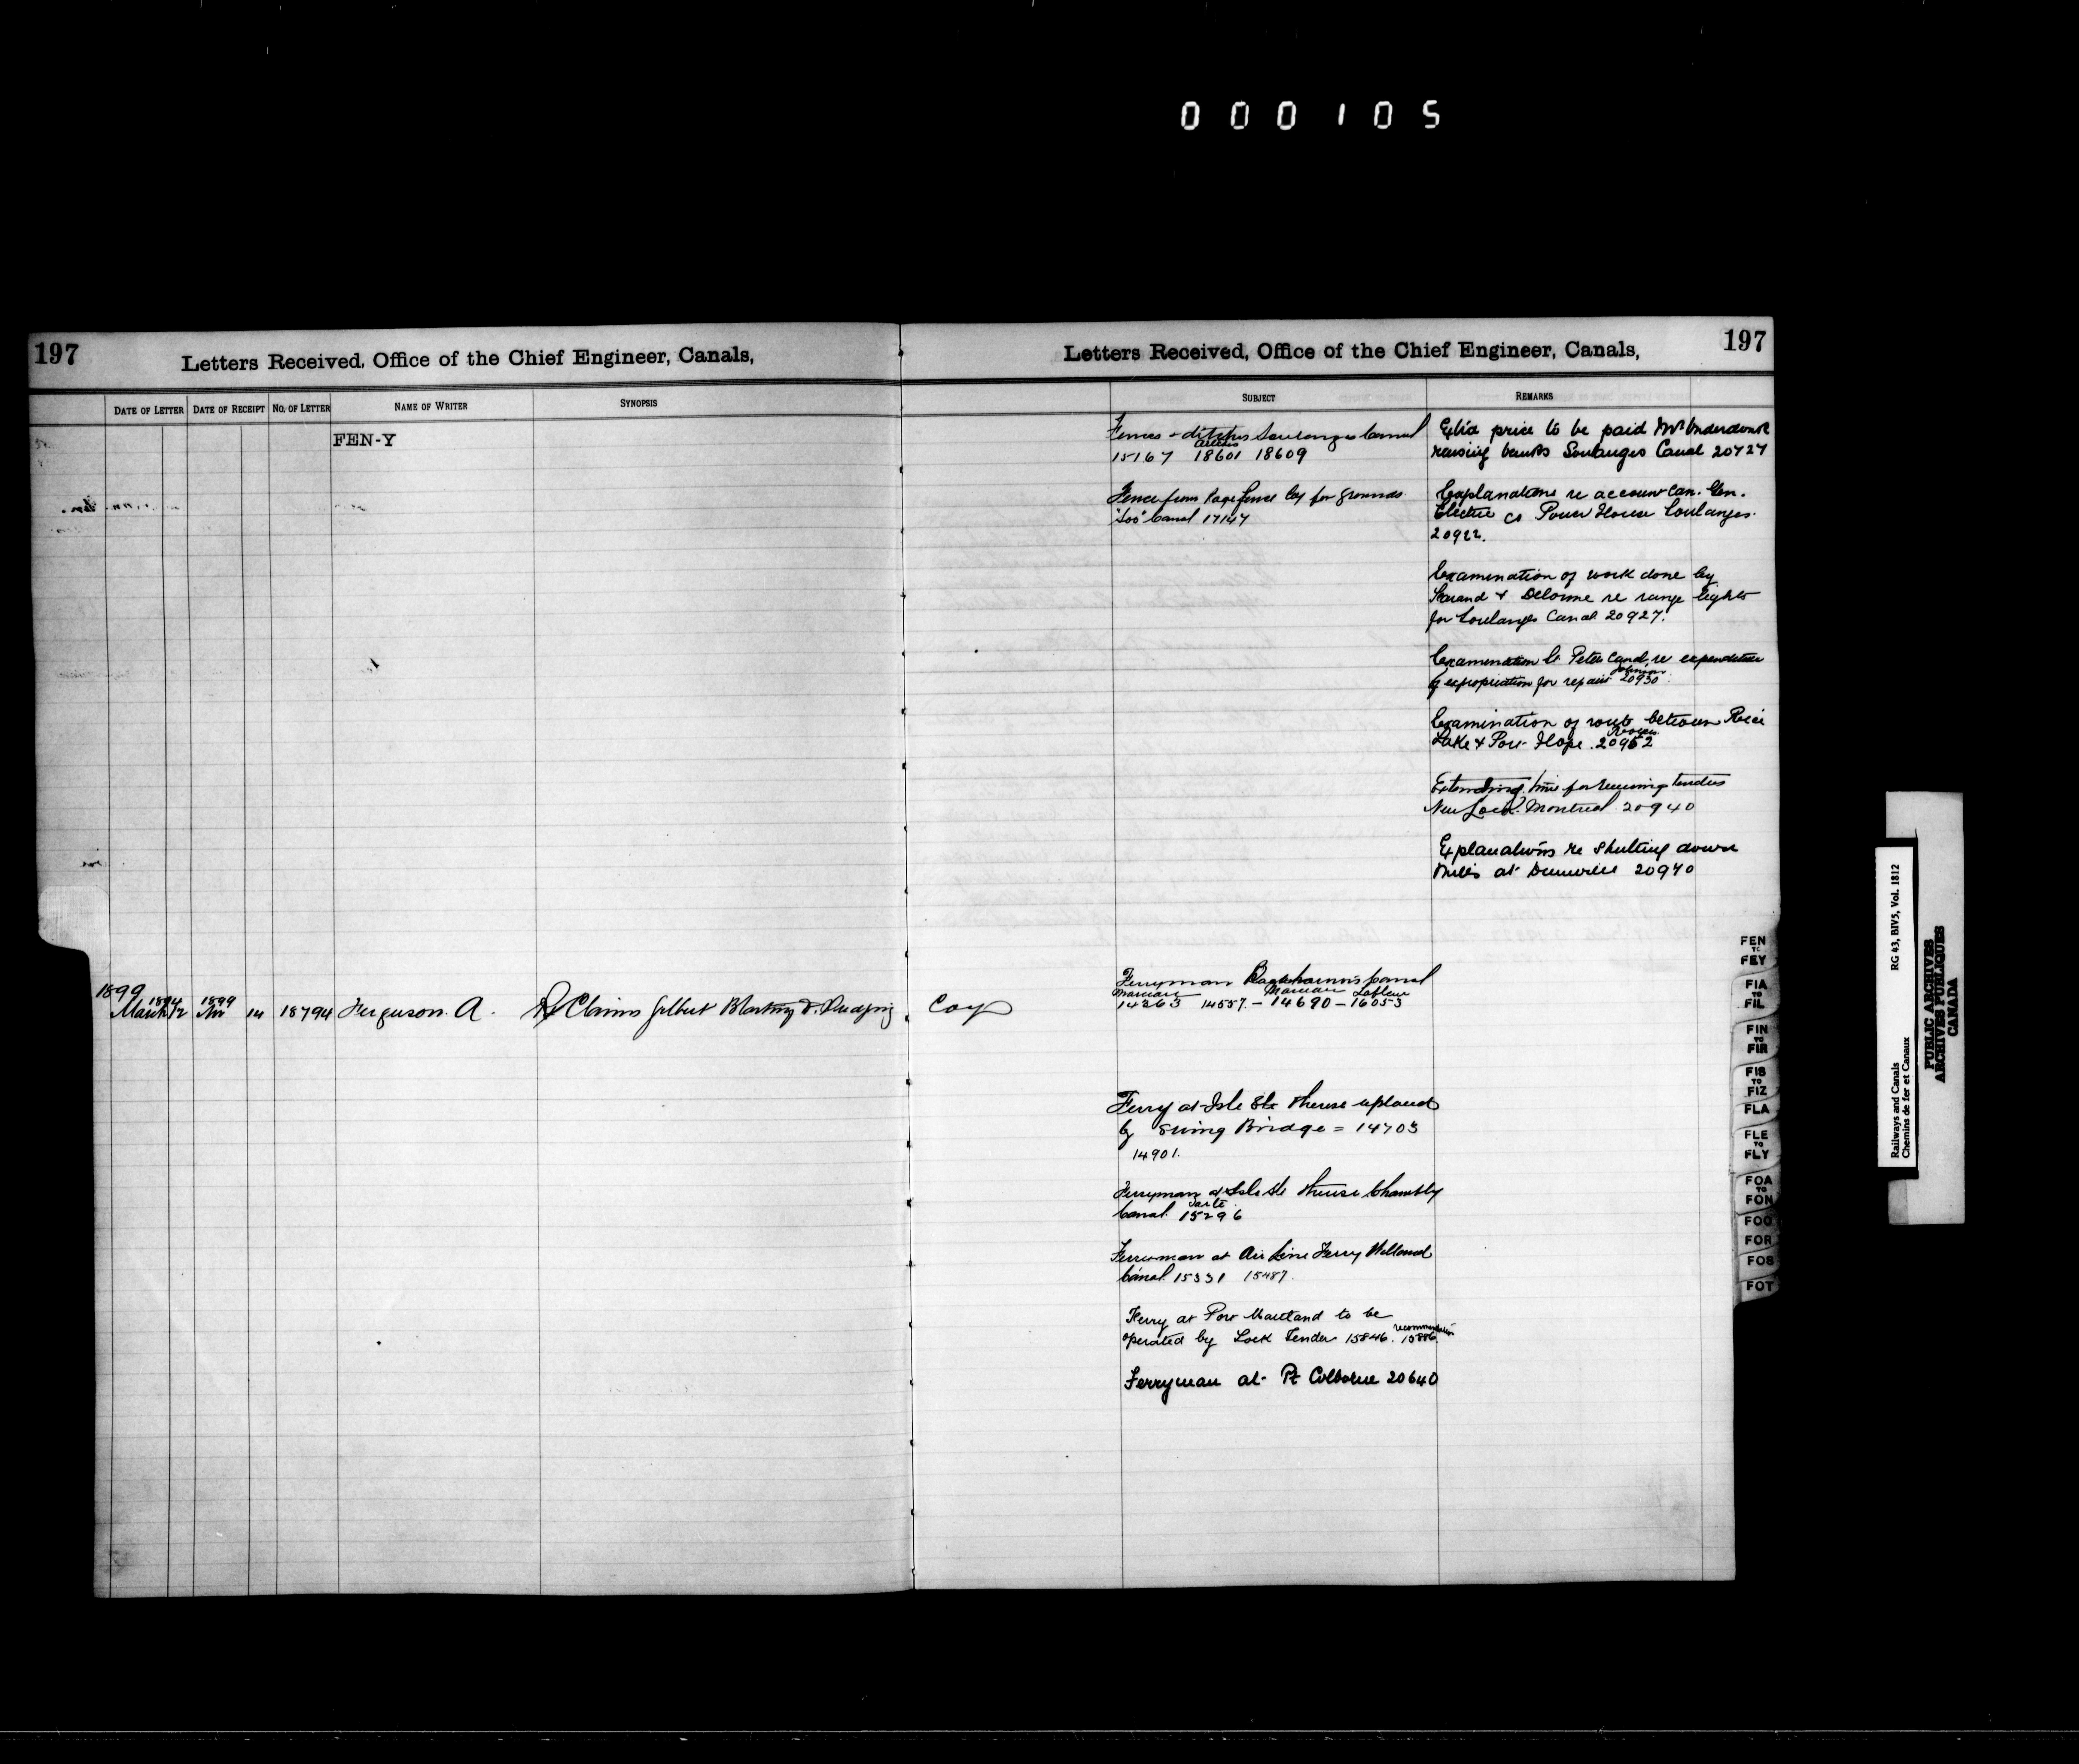 000105
197
Letters Received, Office of the Chief Engineer, Canals,
Letters Received, Office of the Chief Engineer, Canals,
197
DATE OF LETTER
DATE OF RECEIPT
NO. OF LETTER
NAME OF WRITER
SYNOPSIS
SUBJECT
REMARKS
FEN-Y
1899
March 12
1899
14 18794 Ferguson. A. Re Claims Gilbert Blasting & Dredging Coy
Fences & ditches Soulanges Canal
15167 18601 18609
Fence from Page Fence Coy for grounds
"Soo" Canal 17147
Ferryman Beauharnois Canal
Marceau Marceau
14263 14557. - 14690 - 16053
Ferry at Isle Ste Therese
by Swing Bridge = 14703
14901.
Ferryman at Isle Ste Therese Chambly
Canal. 15296
Ferryman at Air Line Ferry Welland
Canal 15331 15487.
Ferry at Port Maitland to be
operated by Lock Tender 15846. 15886
Ferryman at Pt Colborne 20640
price to be paid Mr
Soulanges Canal 20727
Explanations re account Can. Gen.
Electric Co Power House Soulanges.
20922.
Examination of work done by
& Delorme re range lights
for Soulanges Canal 20927.
Examination St Peters Canal, re expenditure
of for repairs 20930
Examination of route between Rice
Lake & Port Hope. 20952
Extending time for receiving tenders
New Lock Montreal 20940
Explanations re Shutting down
Mills at Dunnville 20940
FEN
TO
FEY
FIA
TO
FIL
FIN
TO
FIR
FIS
TO
FIZ
FLA
FLE
TO
FLY
FOA
TO
FON
FOO
FOR
FOS
FOT
Railways and Canals RG 43, BIV5, Vol. 1812
Chemins de fer et Canaux
PUBLIC ARCHIVES
ARCHIVES PUBLIQUES
CANADA